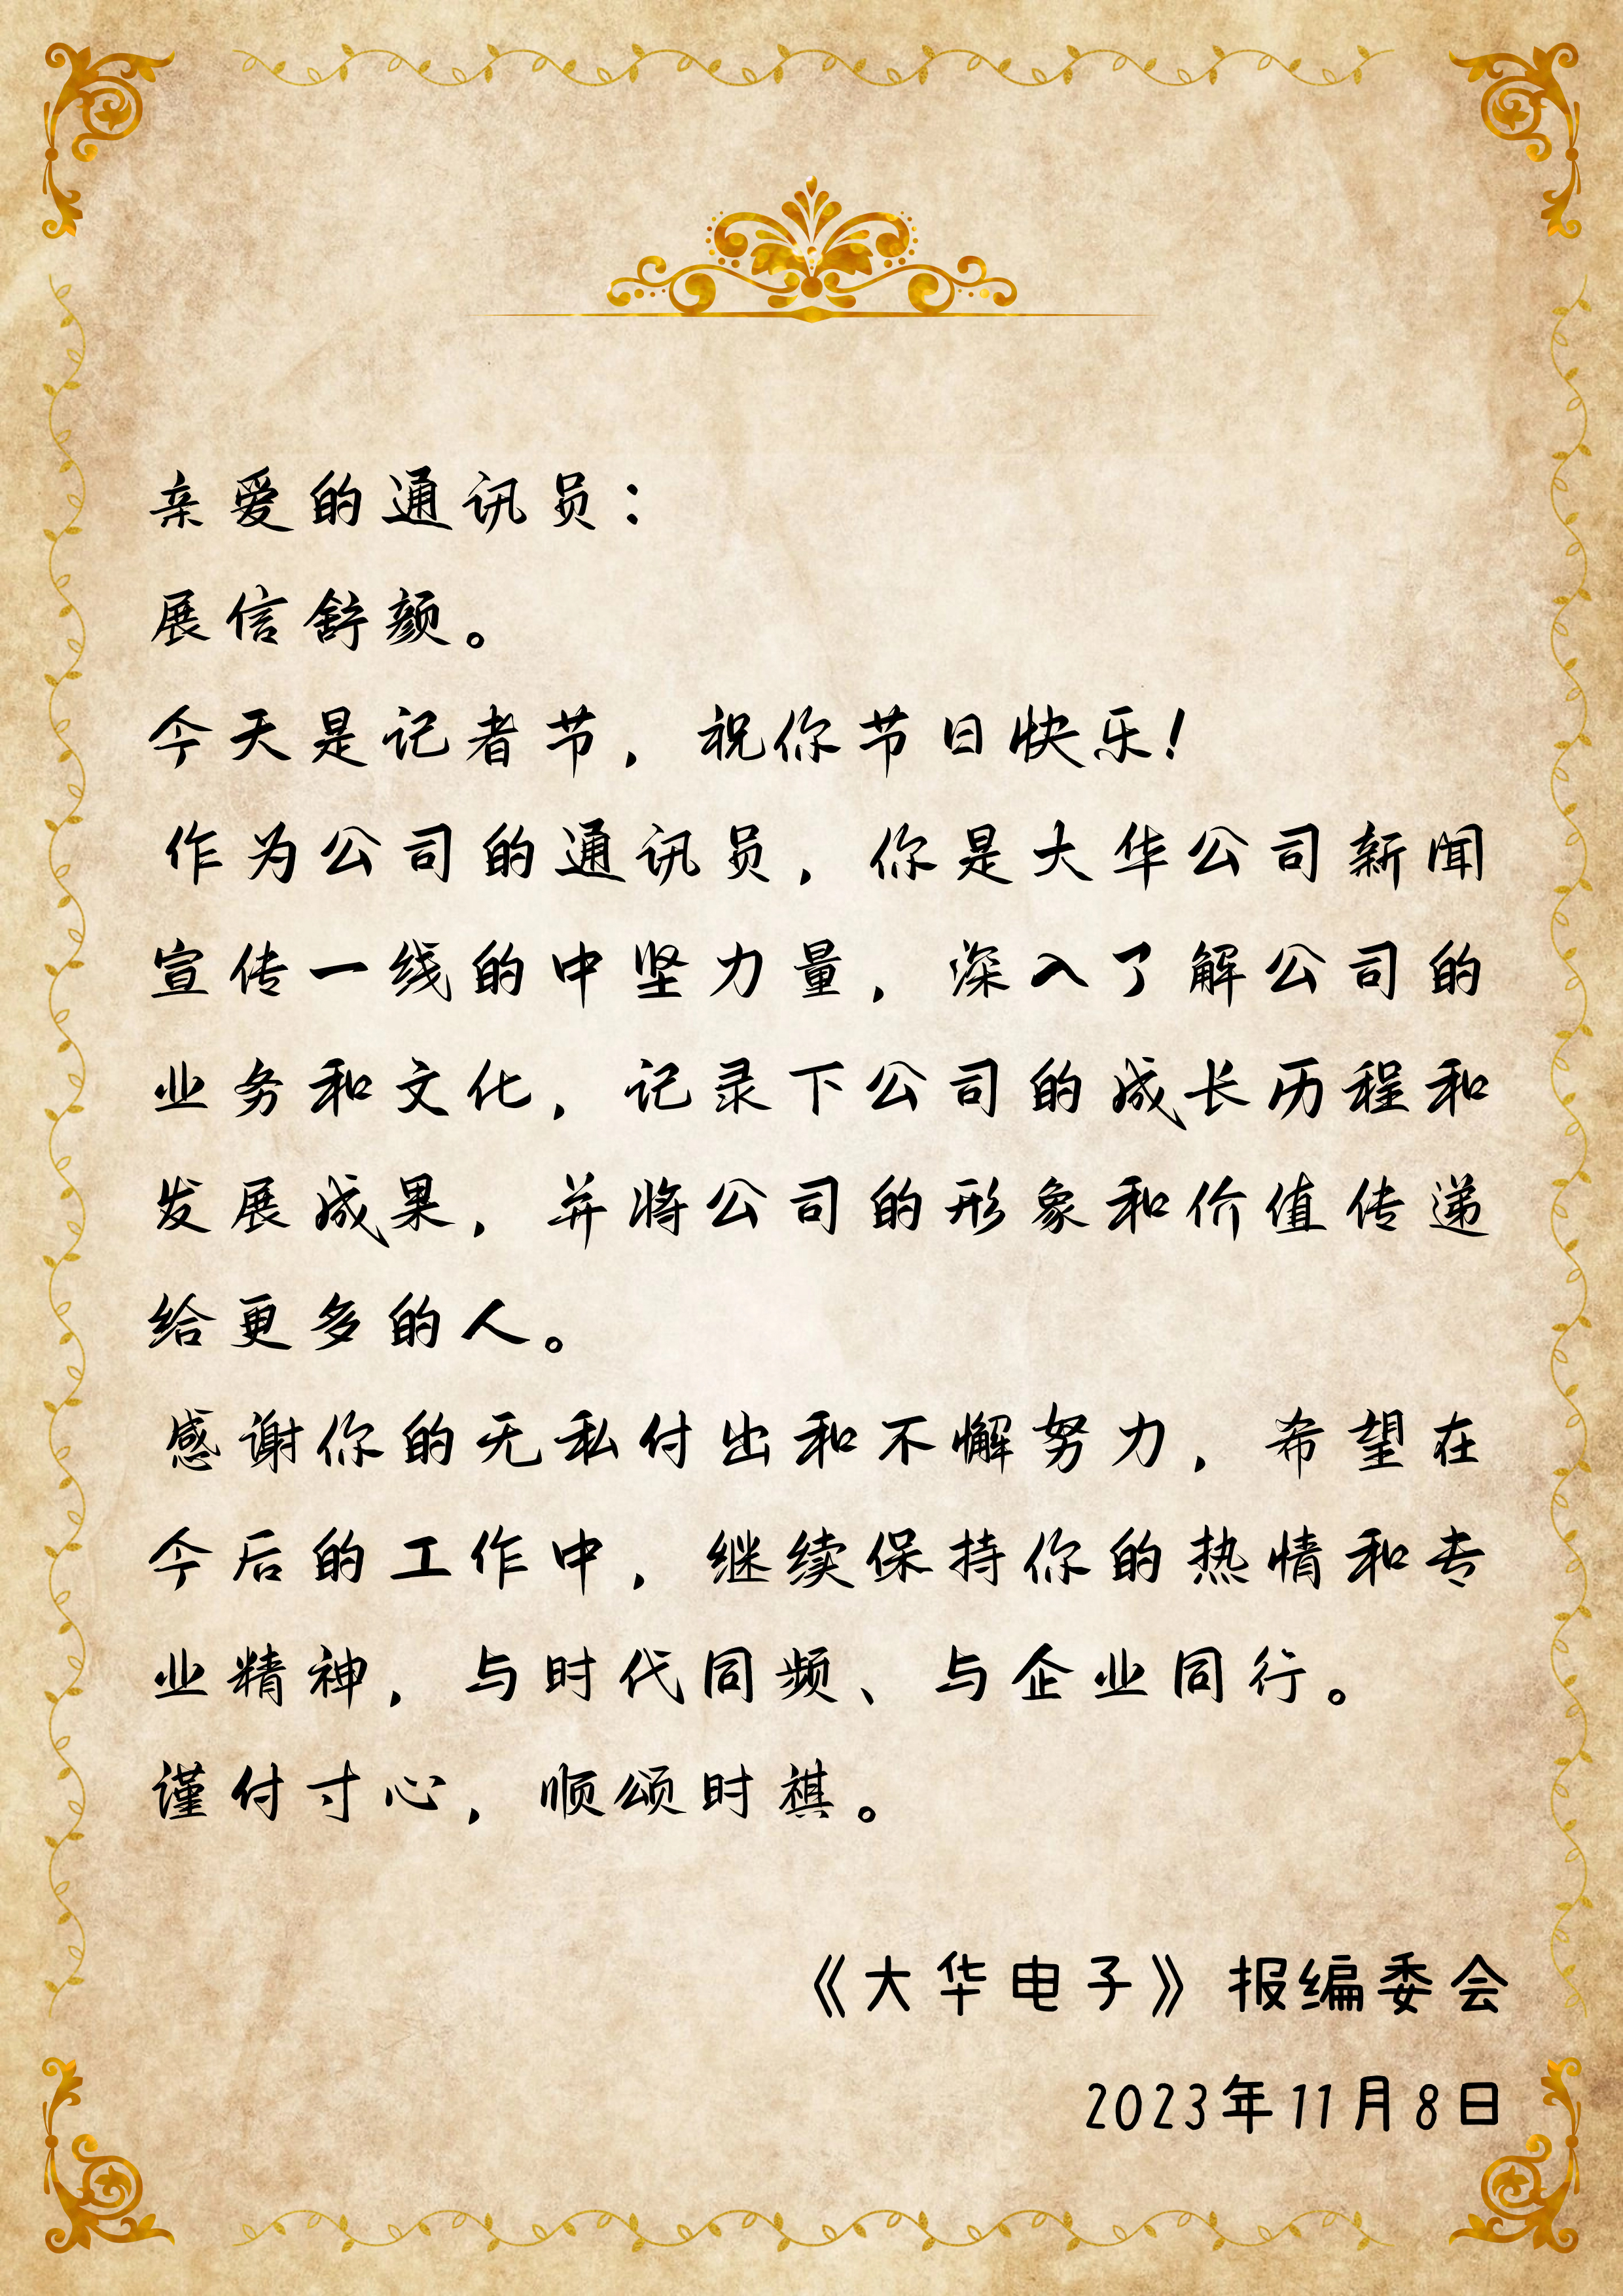 亲爱的通讯员：
展信舒颜。
今天是记者节，祝你节日快乐！
作为公司的通讯员，你是大华公司新闻
宣传一线的中坚力量，深入了解公司的
业务和文化，记录下公司的成长历程和
发展成果，并将公司的形象和价值传递
给更多的人。
感谢你的无私付出和不懈努力，希望在
今后的工作中，继续保持你的热情和专
业精神，与时代同频、与企业同行。
谨付寸心，顺颂时祺。
《大华电子》报编委会
2023年11月8日